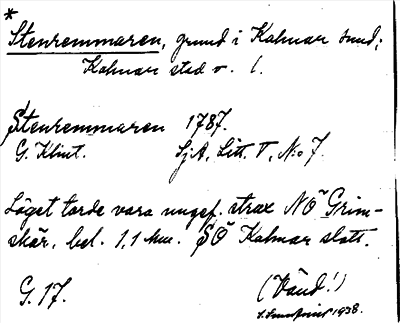 *
Stenremmaren, grund i Kalmar sund;
Kalmar stad o. l.
Stenremmaren 1787.
G. Klint. SjA, Litt. T, N:o 7.
Läget torde vara ungef. strax NÖ Grim-
skär, bel. 1,1 km. SÖ Kalmar slott.
G. 17. (Vänd!)
1938.